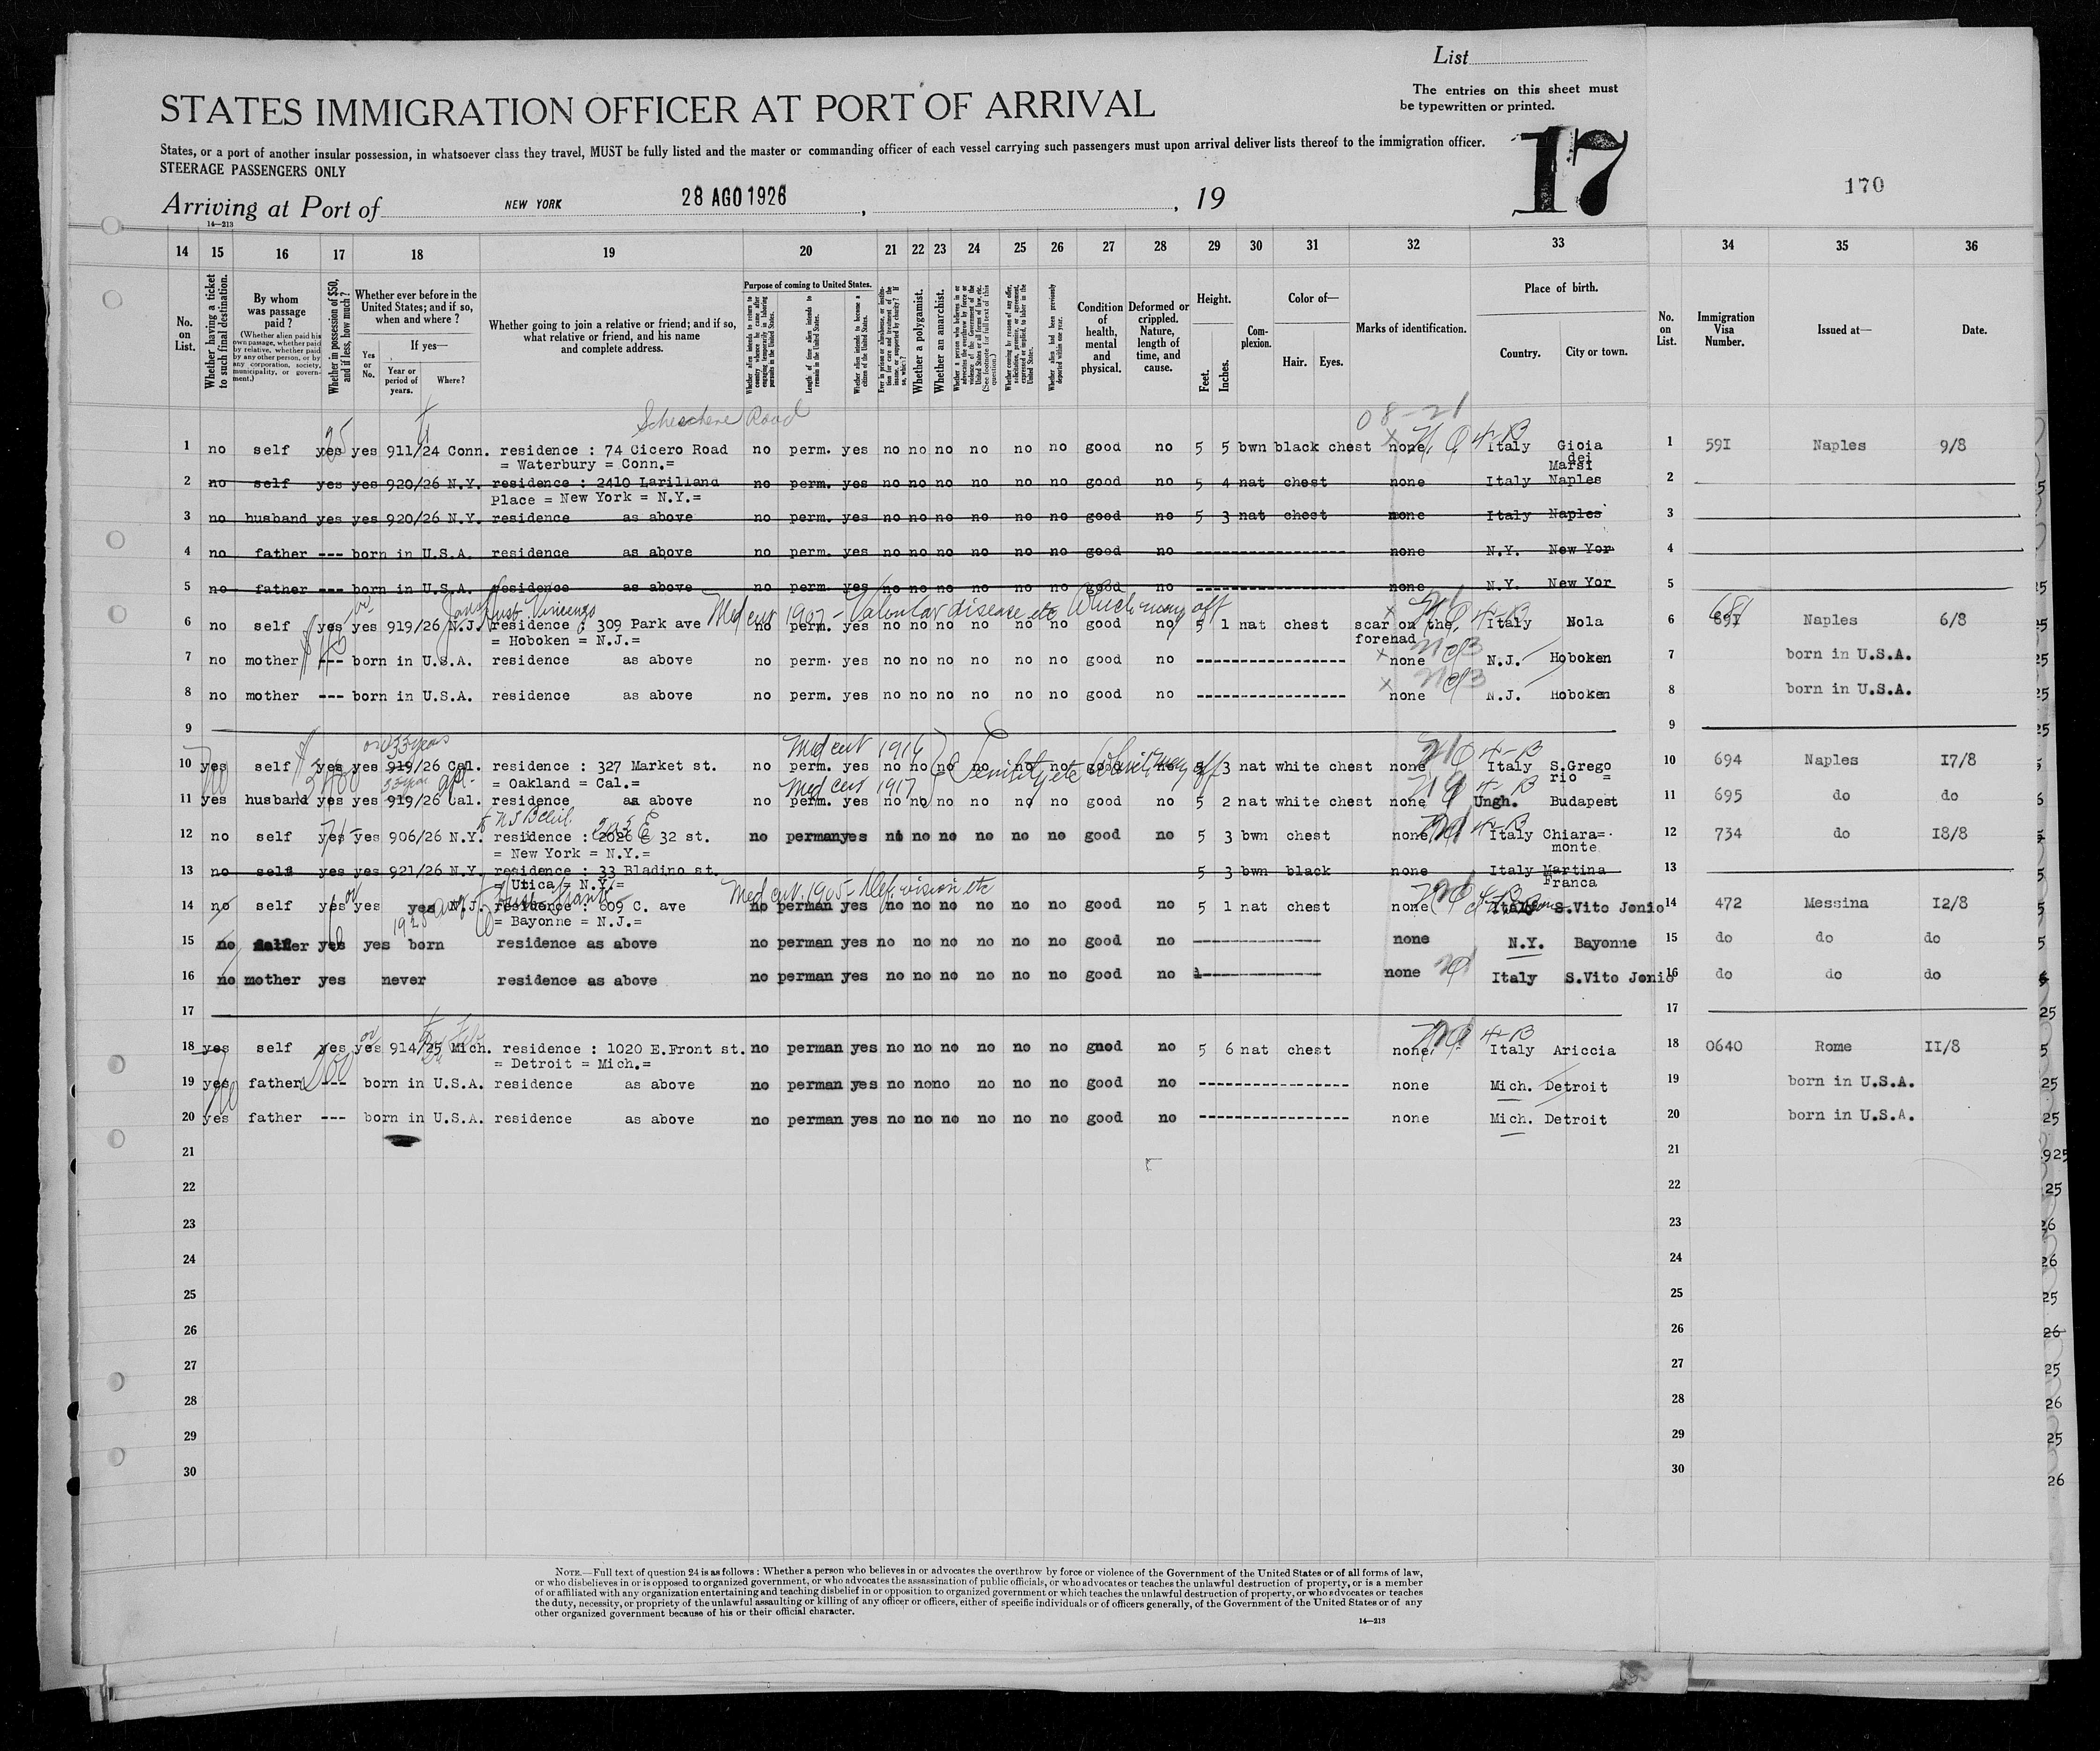 List
The entries on this sheet must
be typewritten or printed.
STATES IMMIGRATION OFFICER AT PORT OF ARRIVAL
17
170
States, or a port of another insular possession, in whatsoever class they travel, MUST be fully listed and the master or commanding officer of each vessel carrying such passengers must upon arrival deliver lists thereof to the immigration officer.
STEERAGE PASSENGERS ONLY
Arriving at Port of NEW YORK 28 AGO 1926, , 19
14—213
14 15 16 17 18 19 20 21 22 23 24 25 26 27 28 29 30 31 32 33 34 35 36
No. on List.
Whether having a ticket to such final destination.
By whom was passage paid?
(Whether alien paid his own passage, whether paid by relative, whether paid by any other person, or by any corporation, society, municipality, or government.)
Whether in possession of $50, and if less, how much?
Whether ever before in the United States; and if so, when and where?
Yes or No.
If yes—
Year or period of years.
Where?
Whether going to join a relative or friend; and if so, what relative or friend, and his name and complete address.
Purpose of coming to United States.
Whether alien intends to return to country whence he came after engaging temporarily in laboring pursuits in the United States.
Length of time alien intends to remain in the United States.
Whether alien intends to become a citizen of the United States.
Whether a polygamist.
Whether an anarchist.
Condition of health, mental and physical.
Deformed or crippled. Nature, length of time, and cause.
Height.
Feet. Inches.
Complexion.
Color of—
Hair. Eyes.
Marks of identification.
Place of birth.
Country. City or town.
No. on List.
Immigration Visa Number.
Issued at—
Date.
Road
08-21
1 no self yes yes 911/24 Conn. residence : 74 Cicero Road no perm. yes no no no no no no good no 5 5 bwn black chest none Italy Gioia 1 591 Naples 9/8
= Waterbury = Conn.= dei
Marsi
2 no self yes yes 920/26 N.Y. residence : 2410 Lariliand no perm. yes no no no no no no good no 5 4 nat chest none Italy Naples 2
Place = New York = N.Y.=
3 no husband yes yes 920/26 N.Y. residence as above no perm. yes no no no no no no good no 5 3 nat chest none Italy Naples 3
4 no father --- born in U.S.A. residence as above no perm. yes no no no no no no good no none N.Y. New Yor 4
5 no father --- born in U.S.A. residence as above no perm. yes no no no no no no good no none N.Y. New Yor 5
Med cert 1907 - Valvular disease etc which may aff
6 no self yes yes 919/26 N.J. residence : 309 Park ave no perm. yes no no no no no no good no 5 1 nat chest scar on the Italy Nola 6 681 Naples 6/8
= Hoboken = N.J.= forehad
7 no mother --- born in U.S.A. residence as above no perm. yes no no no no no no good no none N.J. Hoboken 7 born in U.S.A.
8 no mother --- born in U.S.A. residence as above no perm. yes no no no no no no good no none N.J. Hoboken 8 born in U.S.A.
9 9
33 years
Med cert 1916
10 yes self yes yes 919/26 Cal. residence : 327 Market st. no perm. yes no no no no no no good no 5 3 nat white chest none Italy S.Grego 10 694 Naples 17/8
= Oakland = Cal.= rio =
Senility etc which may aff
Med cert 1917
11 yes husband yes yes 919/26 Cal. residence as above no perm. yes no no no no no no good no 5 2 nat white chest none Ungh. Budapest 11 695 do do
12 no self yes yes 906/26 N.Y. residence : 2026 E 32 st. no perman yes no no no no no no good no 5 3 bwn chest none Italy Chiara= 12 734 do 18/8
= New York = N.Y.= monte
13 no self yes yes 921/26 N.Y. residence : 33 Bladino st. 5 3 bwn black none Italy Martina 13
= Utica = N.Y.= Franca
Med cert. 1905 - Def. vision etc
14 no self yes yes yes N.J. residence : 609 C. ave no perman yes no no no no no no good no 5 1 nat chest none Italy S.Vito Jonio 14 472 Messina 12/8
= Bayonne = N.J.=
15 no father yes yes born residence as above no perman yes no no no no no no good no none N.Y. Bayonne 15 do do do
16 no mother yes never residence as above no perman yes no no no no no no good no none Italy S.Vito Jonio 16 do do do
17 17
18 yes self yes yes 914/25 Mich. residence : 1020 E.Front st. no perman yes no no no no no no good no 5 6 nat chest none Italy Ariccia 18 0640 Rome 11/8
= Detroit = Mich.=
19 yes father --- born in U.S.A. residence as above no perman yes no no no no no no good no none Mich. Detroit 19 born in U.S.A.
20 yes father --- born in U.S.A. residence as above no perman yes no no no no no no good no none Mich. Detroit 20 born in U.S.A.
21 21
22 22
23 23
24 24
25 25
26 26
27 27
28 28
29 29
30 30
NOTE.—Full text of question 24 is as follows: Whether a person who believes in or advocates the overthrow by force or violence of the Government of the United States or of all forms of law,
or who disbelieves in or is opposed to organized government, or who advocates the assassination of public officials, or who advocates or teaches the unlawful destruction of property, or is a member
of or affiliated with any organization entertaining and teaching disbelief in or opposition to organized government or which teaches the unlawful destruction of property, or who advocates or teaches
the duty, necessity, or propriety of the unlawful assaulting or killing of any officer or officers, either of specific individuals or of officers generally, of the Government of the United States or of any
other organized government because of his or their official character.
14—213